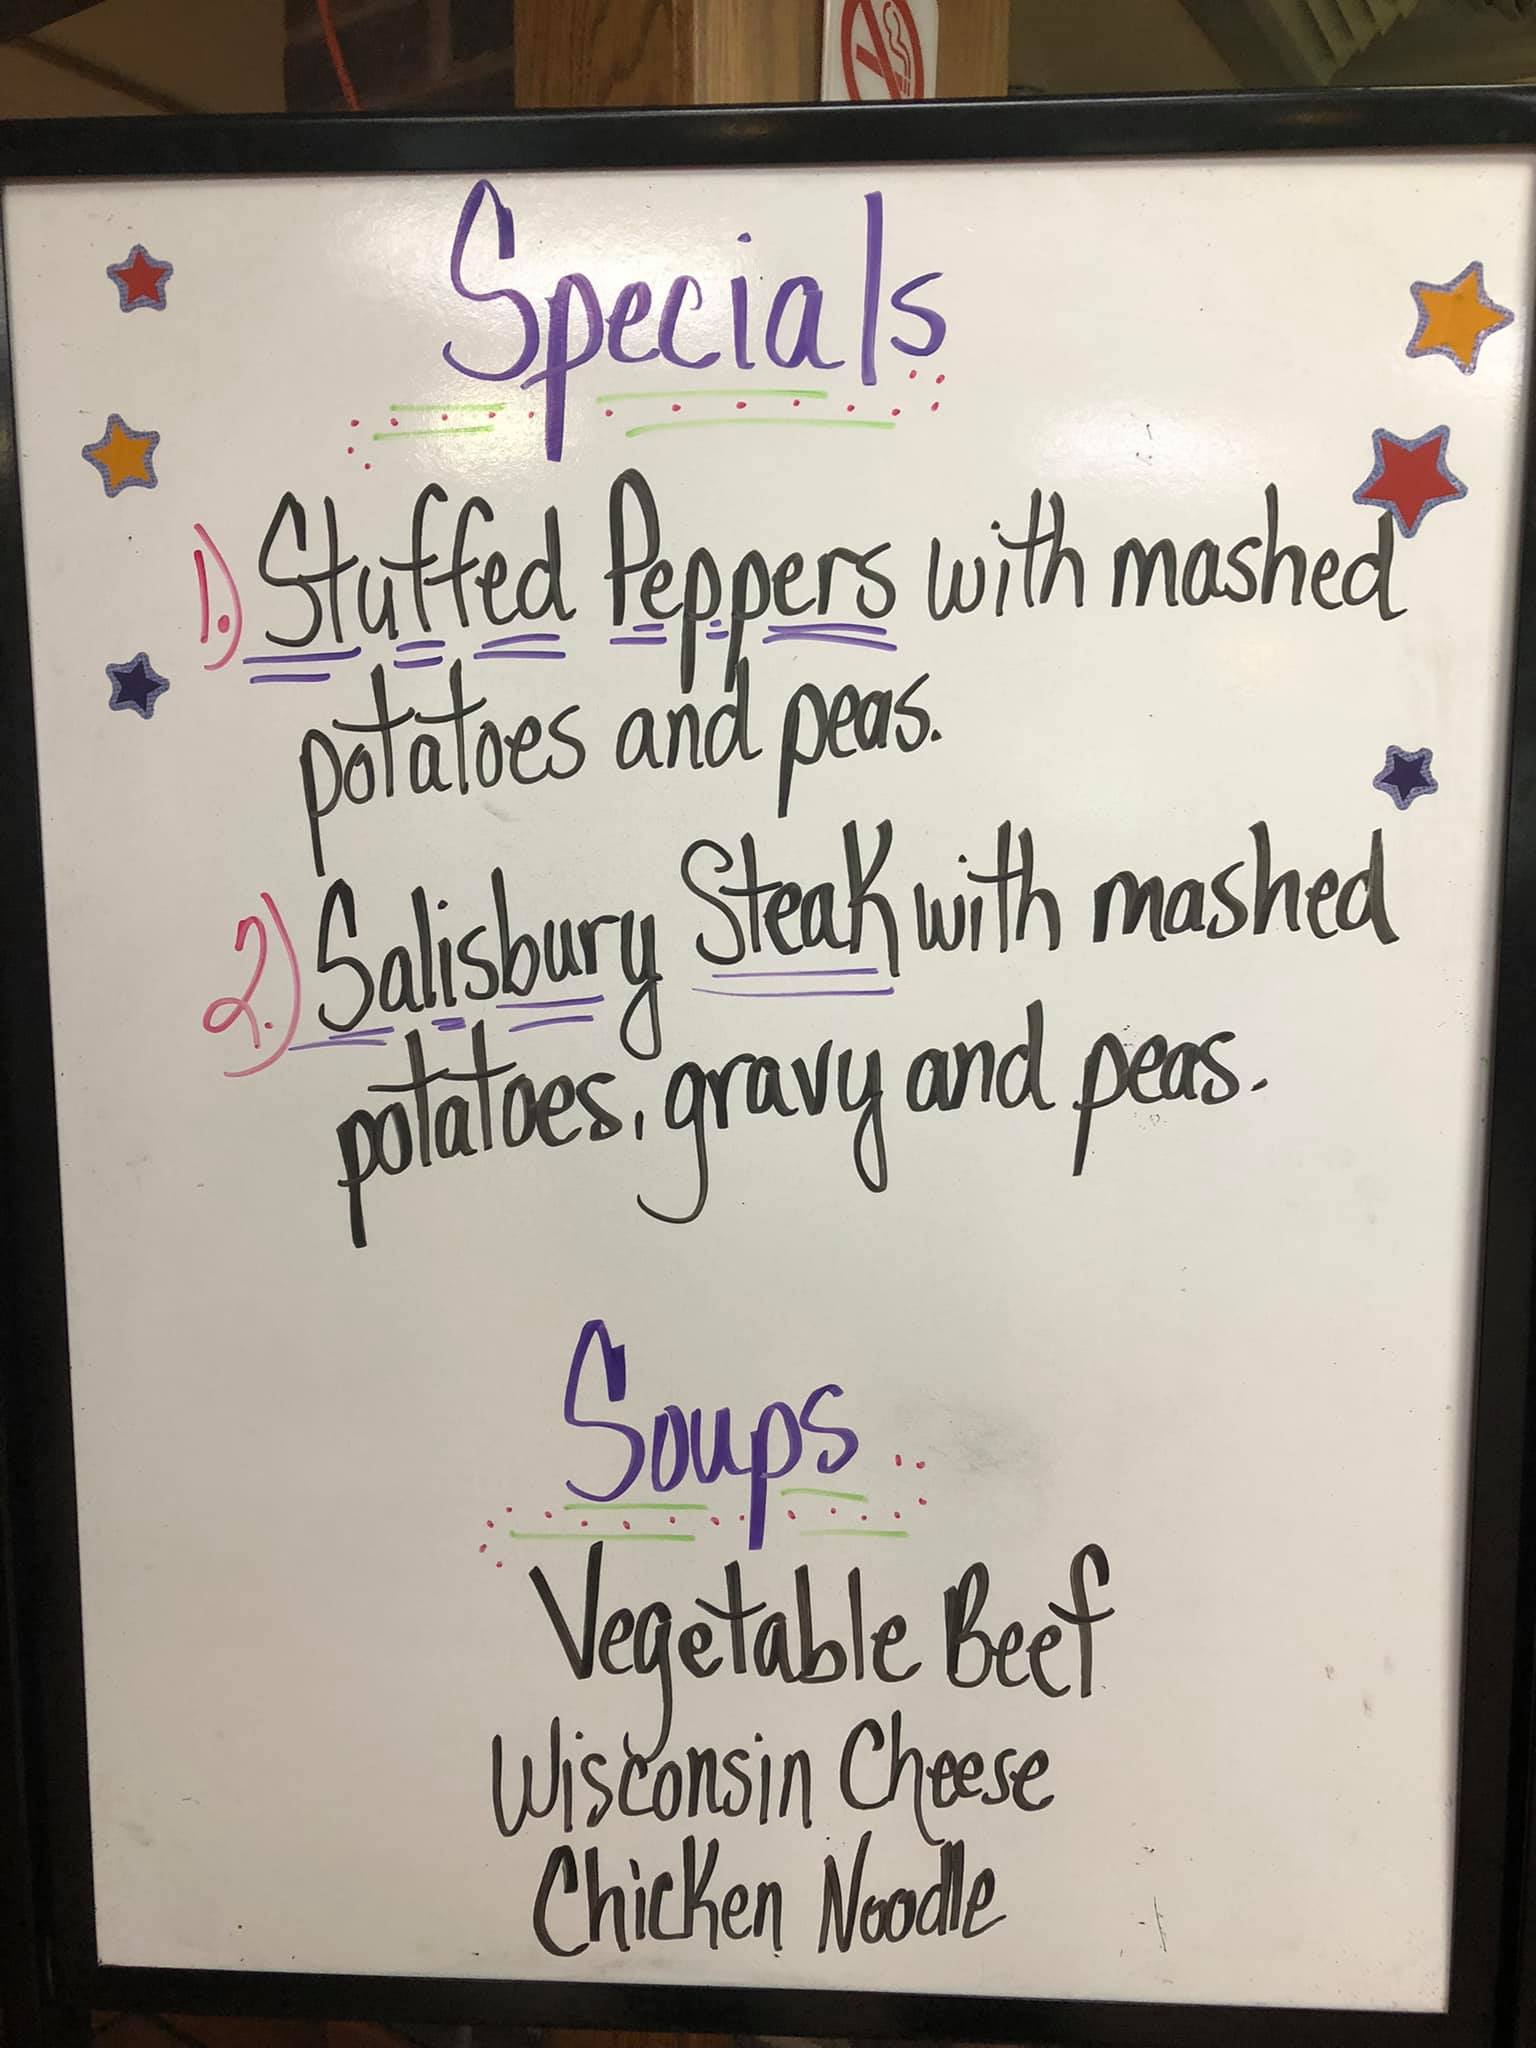 Specials
1.) Stuffed Peppers with mashed
potatoes and peas.
2.) Salisbury Steak with mashed
potatoes, gravy and peas.
Soups
Vegetable Beef
Wisconsin Cheese
Chicken Noodle